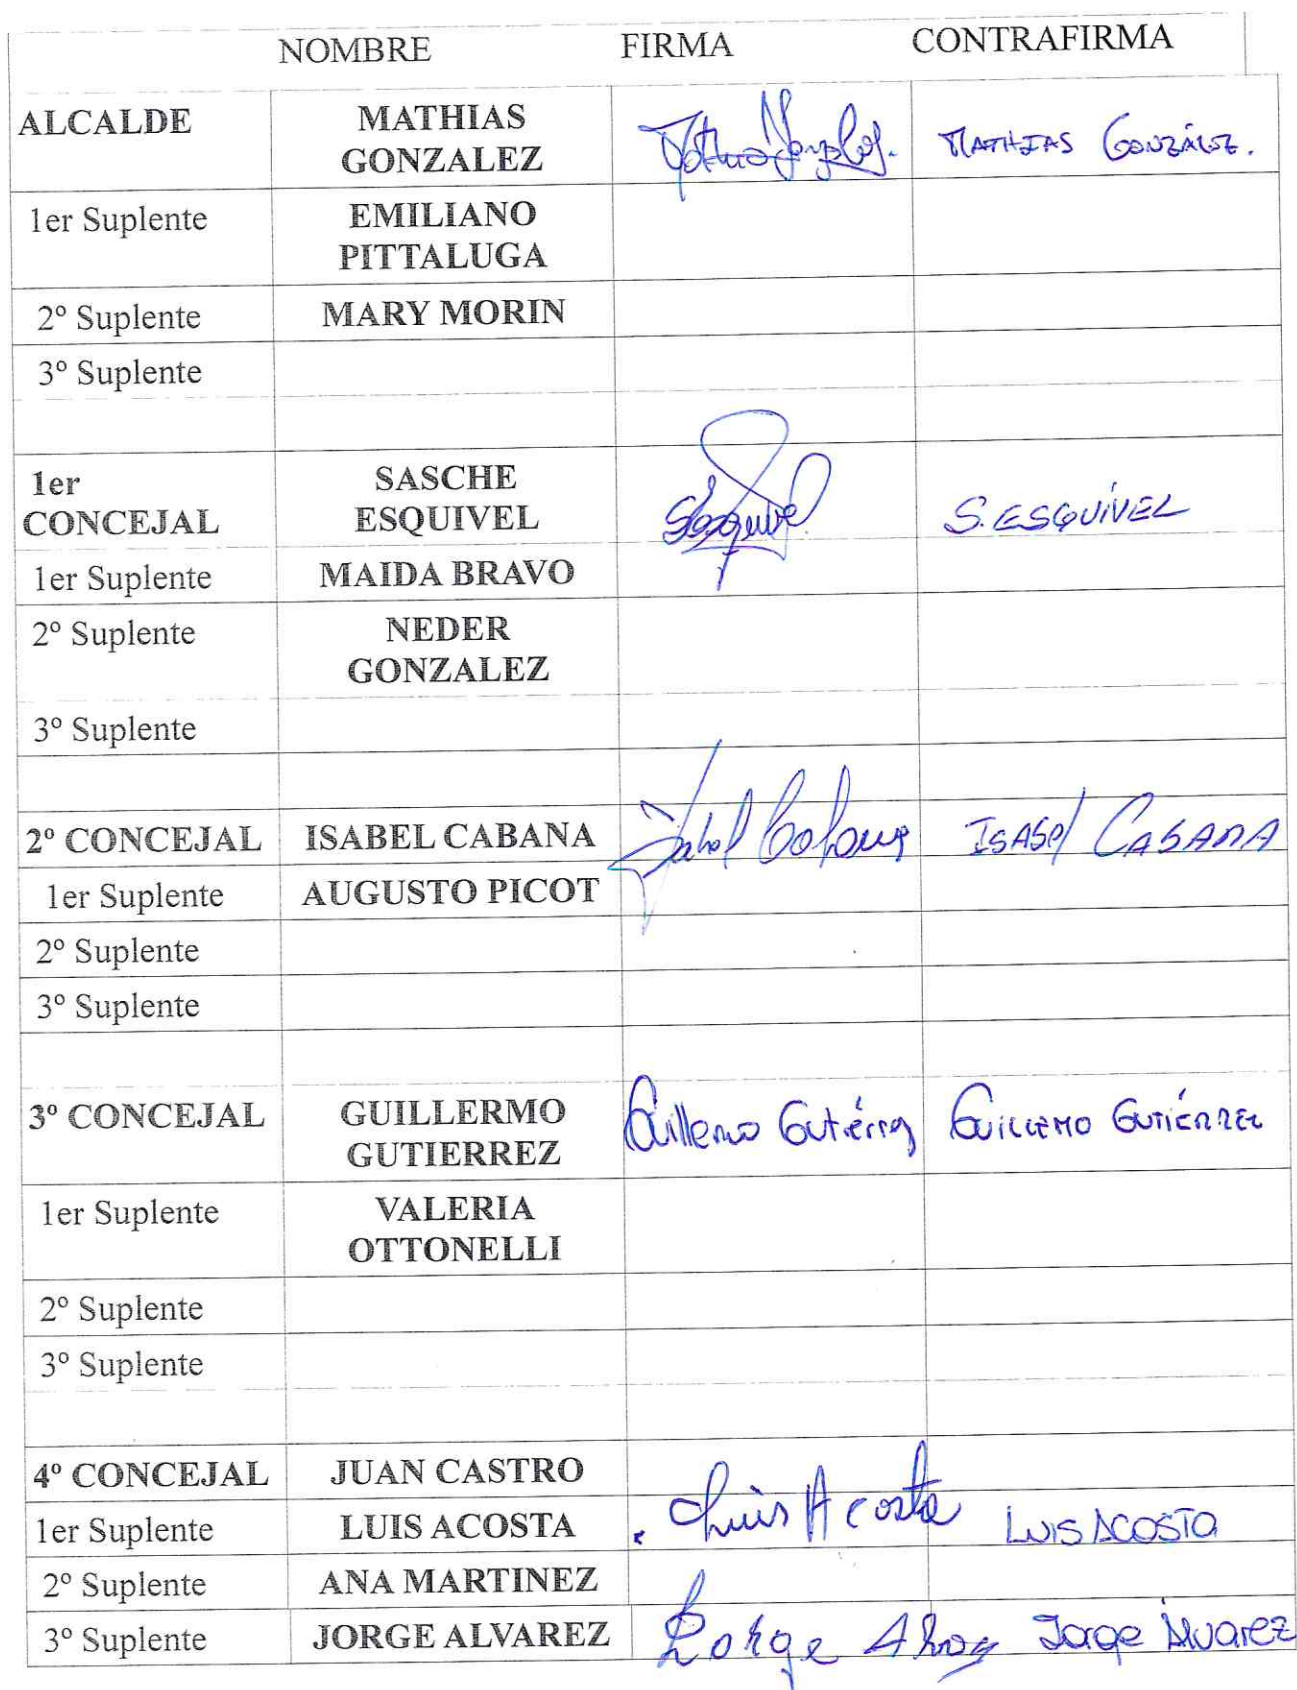 NOMBRE FIRMA CONTRAFIRMA
ALCALDE MATHIAS GONZALEZ Mathias Gonzalez. MATHIAS GONZÁLEZ.
1er Suplente EMILIANO PITTALUGA
2º Suplente MARY MORIN
3º Suplente
1er CONCEJAL SASCHE ESQUIVEL SEsquivel S. ESQUIVEL
1er Suplente MAIDA BRAVO
2º Suplente NEDER GONZALEZ
3º Suplente
2º CONCEJAL ISABEL CABANA Isabel Cabana ISABEL CABANA
1er Suplente AUGUSTO PICOT
2º Suplente
3º Suplente
3º CONCEJAL GUILLERMO GUTIERREZ Guillermo Gutiérrez GUILLERMO GUTIÉRREZ
1er Suplente VALERIA OTTONELLI
2º Suplente
3º Suplente
4º CONCEJAL JUAN CASTRO
1er Suplente LUIS ACOSTA Luis Acosta LUIS ACOSTA
2º Suplente ANA MARTINEZ
3º Suplente JORGE ALVAREZ Jorge Jorge Álvarez